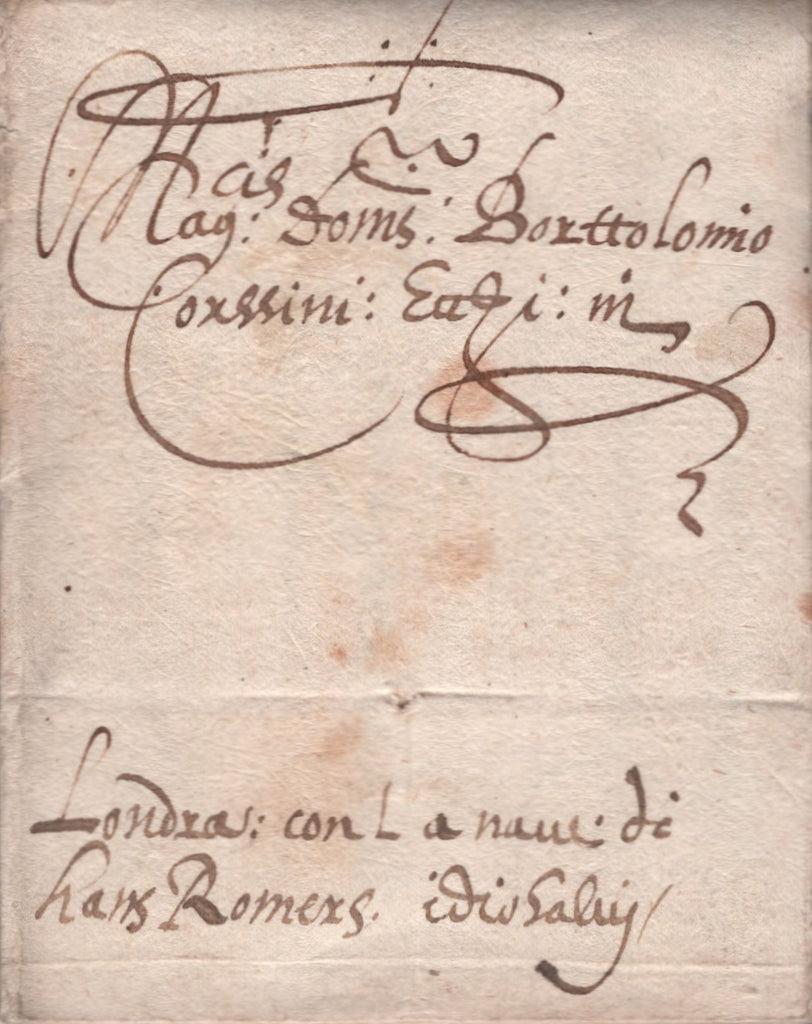 Mag:cis doms: Borttolomio
Corssini: in
Londra: con L a naue: di
hans Romers. idio salui